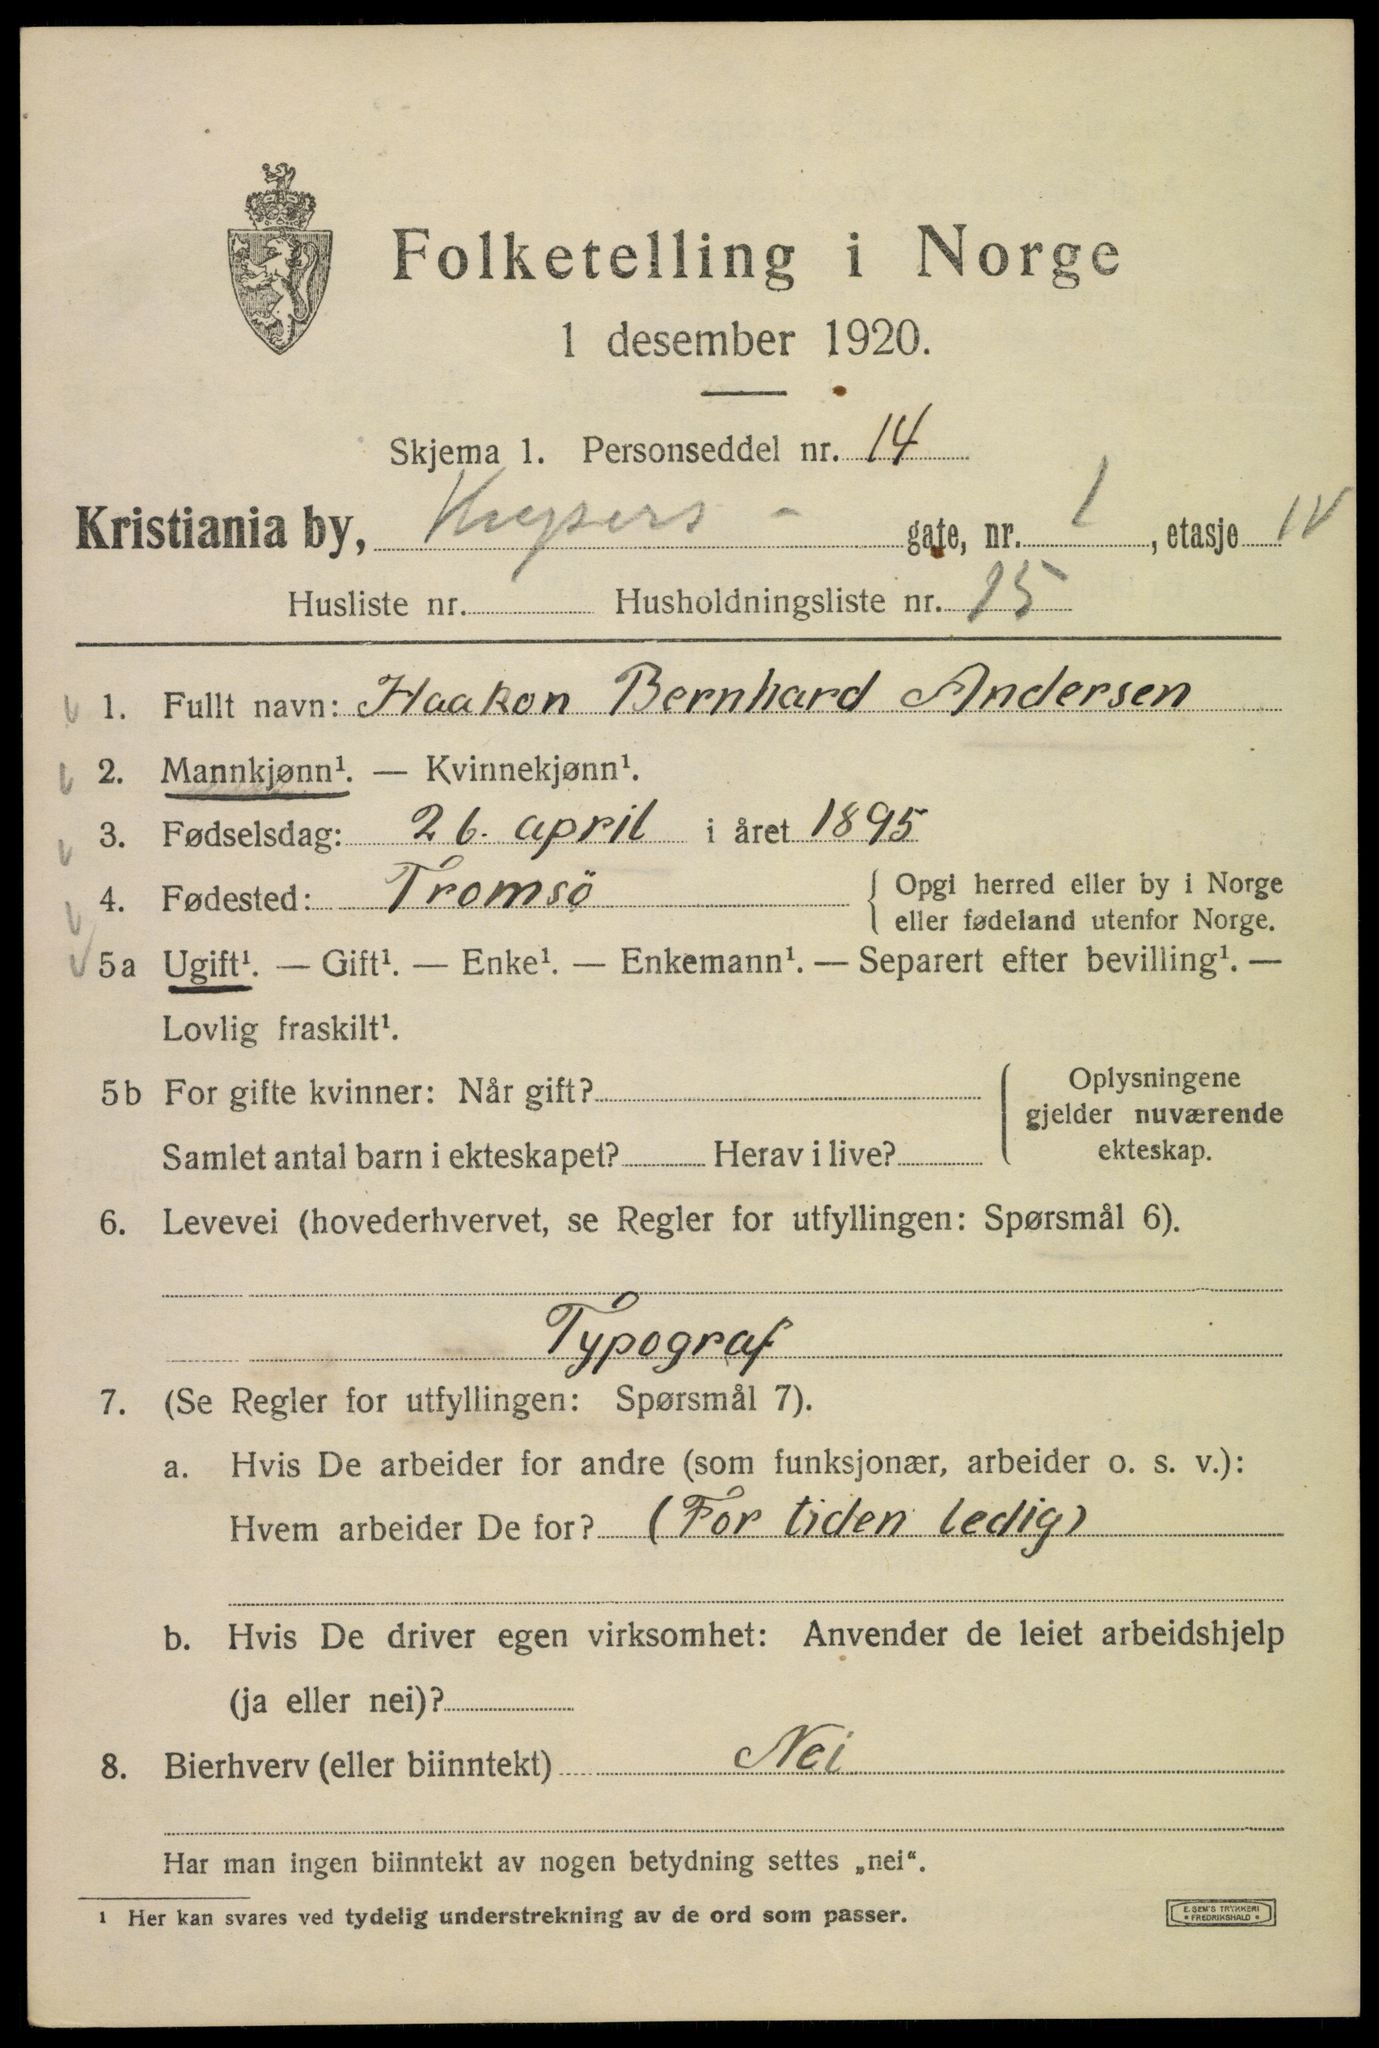 Folketelling i Norge
1 desember 1920.
Skjema 1. Personseddel nr. 14
Kristiania by, Keysers - gate, nr. 1, etasje IV
Husliste nr. Husholdningsliste nr. 25
1. Fullt navn: Haakon Bernhard Andersen
2. Mannkjønn¹. — Kvinnekjønn¹.
3. Fødselsdag: 26. april i året 1895
4. Fødested: Tromsö { Opgi herred eller by i Norge
eller fødeland utenfor Norge.
5a Ugift¹. — Gift¹. — Enke¹. — Enkemann¹. — Separert efter bevilling¹. —
Lovlig fraskilt¹.
5b For gifte kvinner: Når gift?
Samlet antal barn i ekteskapet? Herav i live?
Oplysningene
gjelder nuværende
ekteskap.
6. Levevei (hovederhvervet, se Regler for utfyllingen: Spørsmål 6).
Typograf
7. (Se Regler for utfyllingen: Spørsmål 7).
a. Hvis De arbeider for andre (som funksjonær, arbeider o. s. v.):
Hvem arbeider De for? (For tiden ledig)
b. Hvis De driver egen virksomhet: Anvender de leiet arbeidshjelp
(ja eller nei)?
8. Bierhverv (eller biinntekt) Nei
Har man ingen biinntekt av nogen betydning settes „nei“.
¹ Her kan svares ved tydelig understrekning av de ord som passer.
E. SEM'S TRYKKERI
* FREDRIKSHALD *